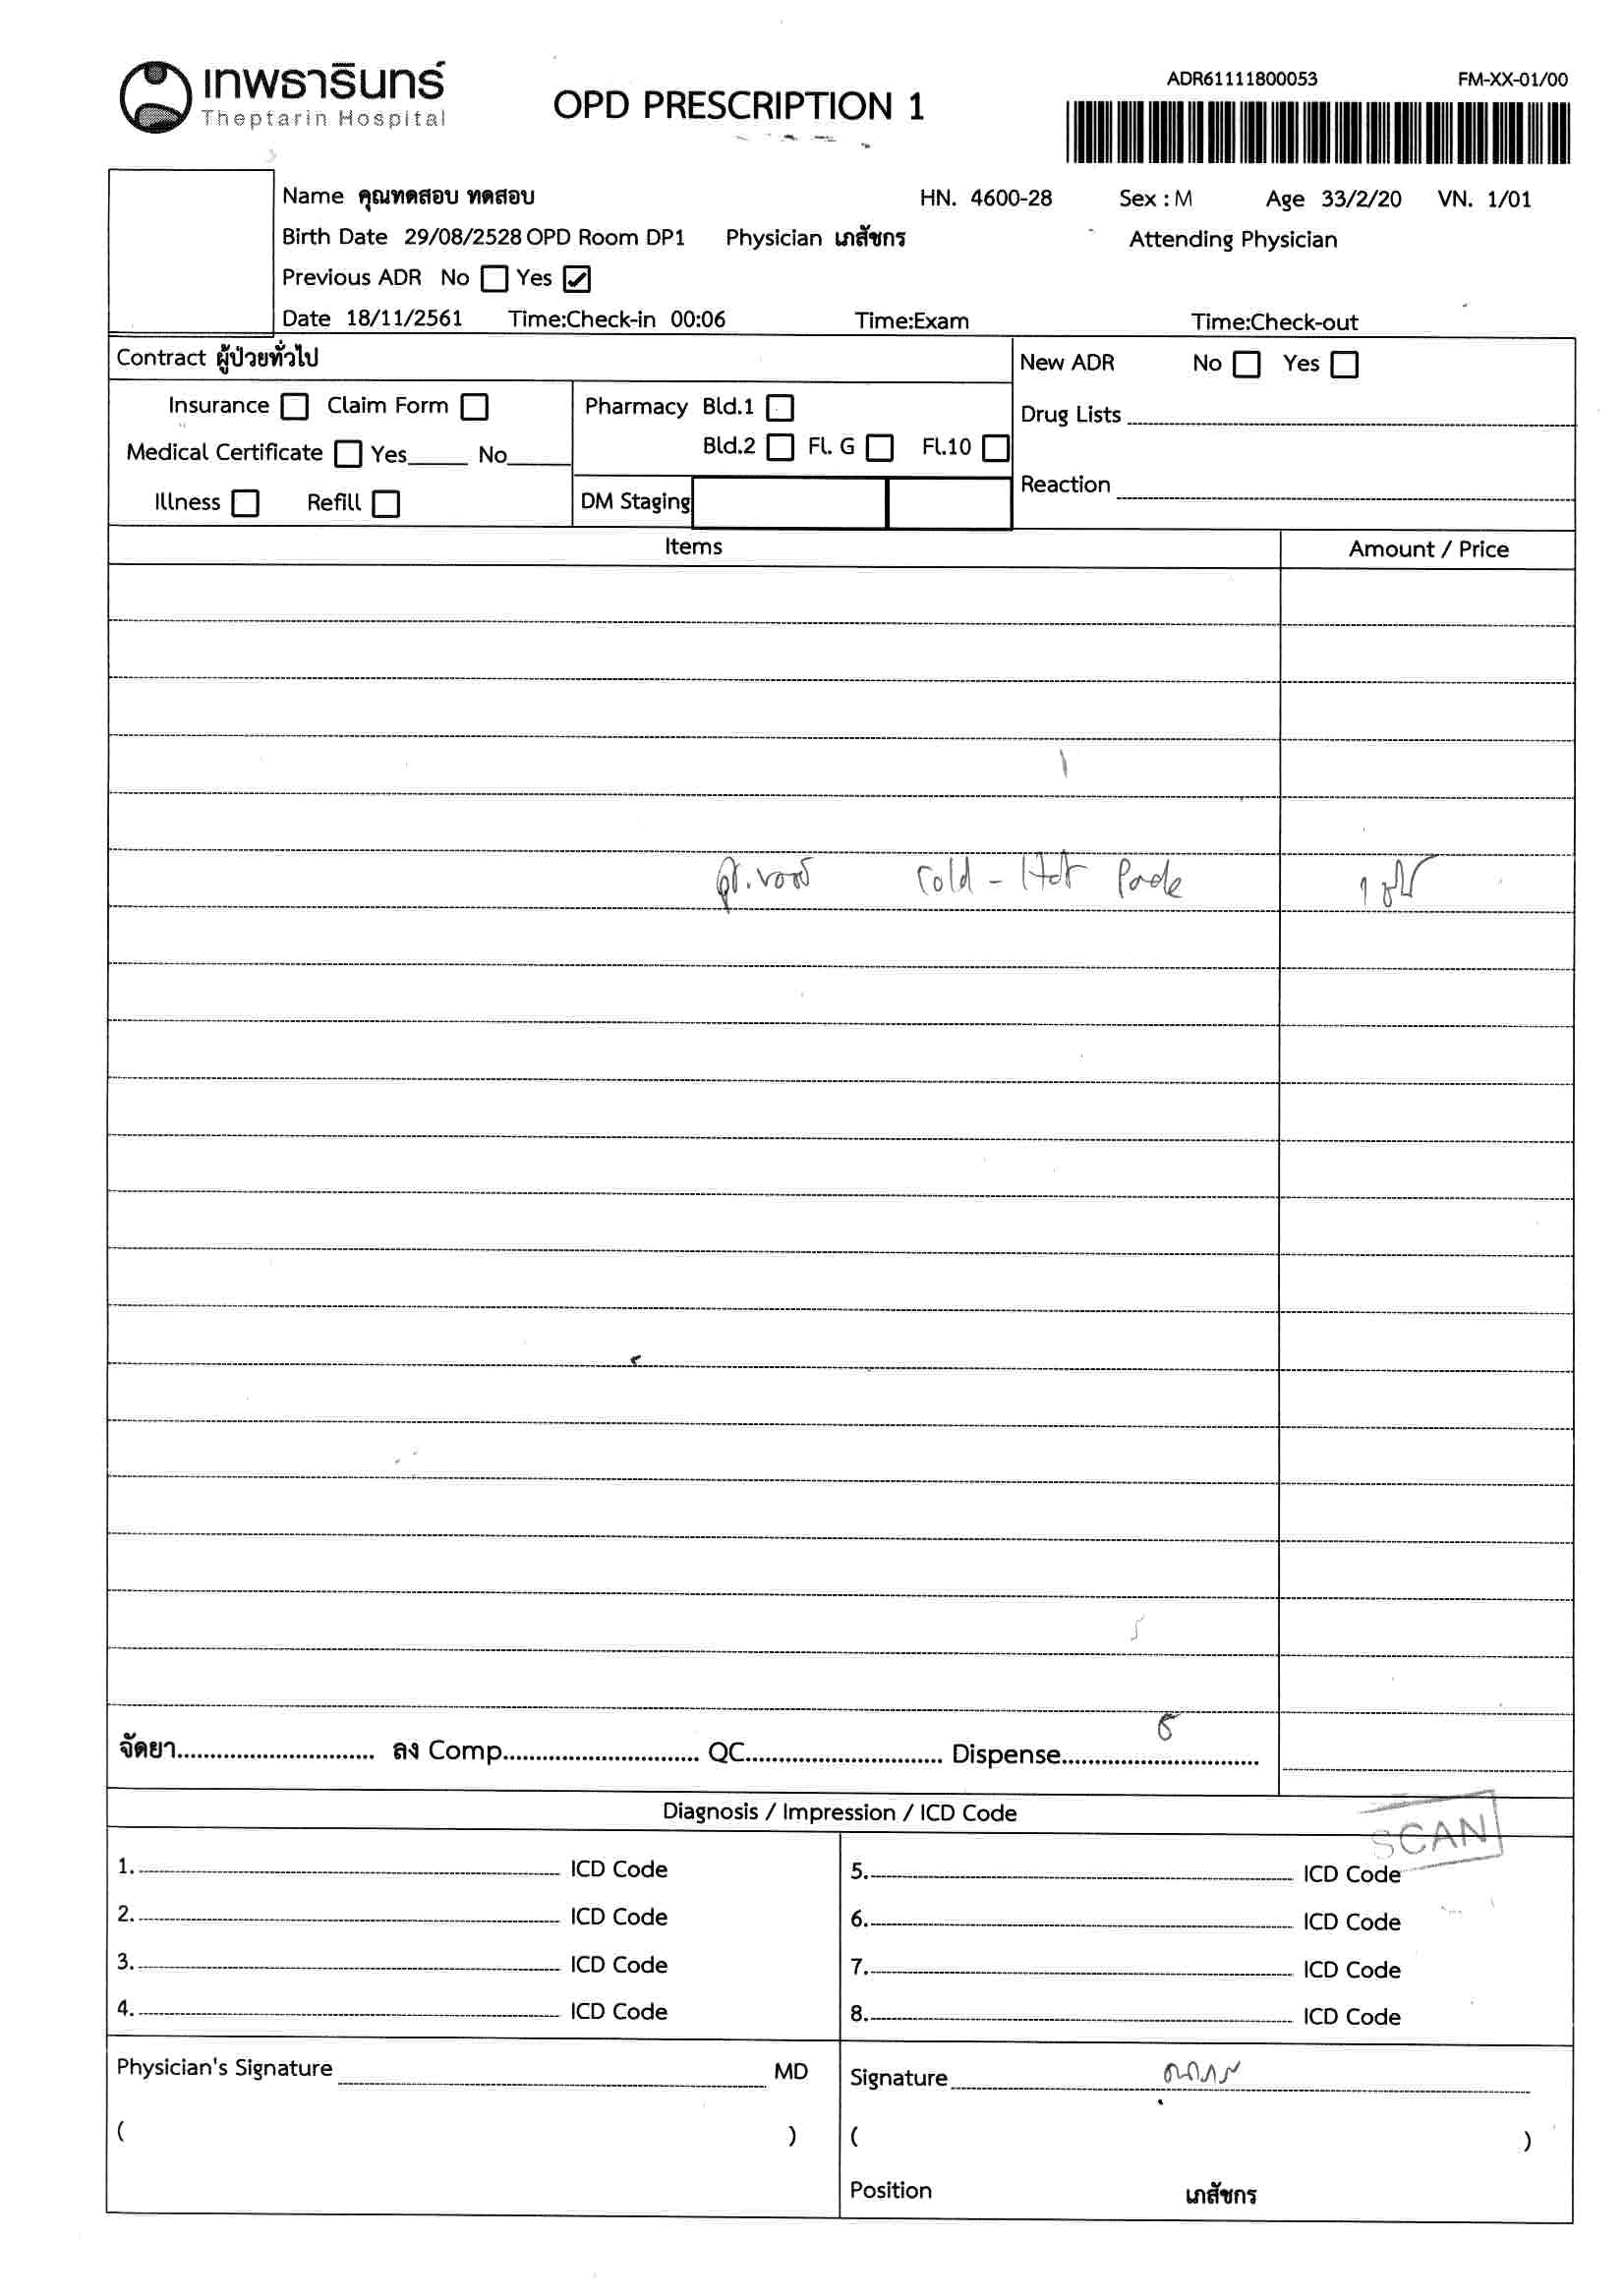 เทพธารินทร์
Theptarin Hospital
OPD PRESCRIPTION 1
ADR61111800053 FM-XX-01/00
Name คุณทดสอบ ทดสอบ HN. 4600-28 Sex : M Age 33/2/20 VN. 1/01
Birth Date 29/08/2528 OPD Room DP1 Physician เภสัชกร Attending Physician
Previous ADR No Yes
Date 18/11/2561 Time:Check-in 00:06 Time:Exam Time:Check-out
Contract ผู้ป่วยทั่วไป
New ADR No Yes
Insurance Claim Form
Pharmacy Bld.1
Drug Lists
Medical Certificate Yes No
Bld.2 Fl. G Fl.10
Reaction
Illness Refill
DM Staging
Items Amount / Price
Cold - Hot Pack 1
จัดยา........................... ลง Comp........................... QC........................... Dispense...........................
Diagnosis / Impression / ICD Code
SCAN
1. ICD Code 5. ICD Code
2. ICD Code 6. ICD Code
3. ICD Code 7. ICD Code
4. ICD Code 8. ICD Code
Physician's Signature MD Signature
( ) ( )
Position เภสัชกร